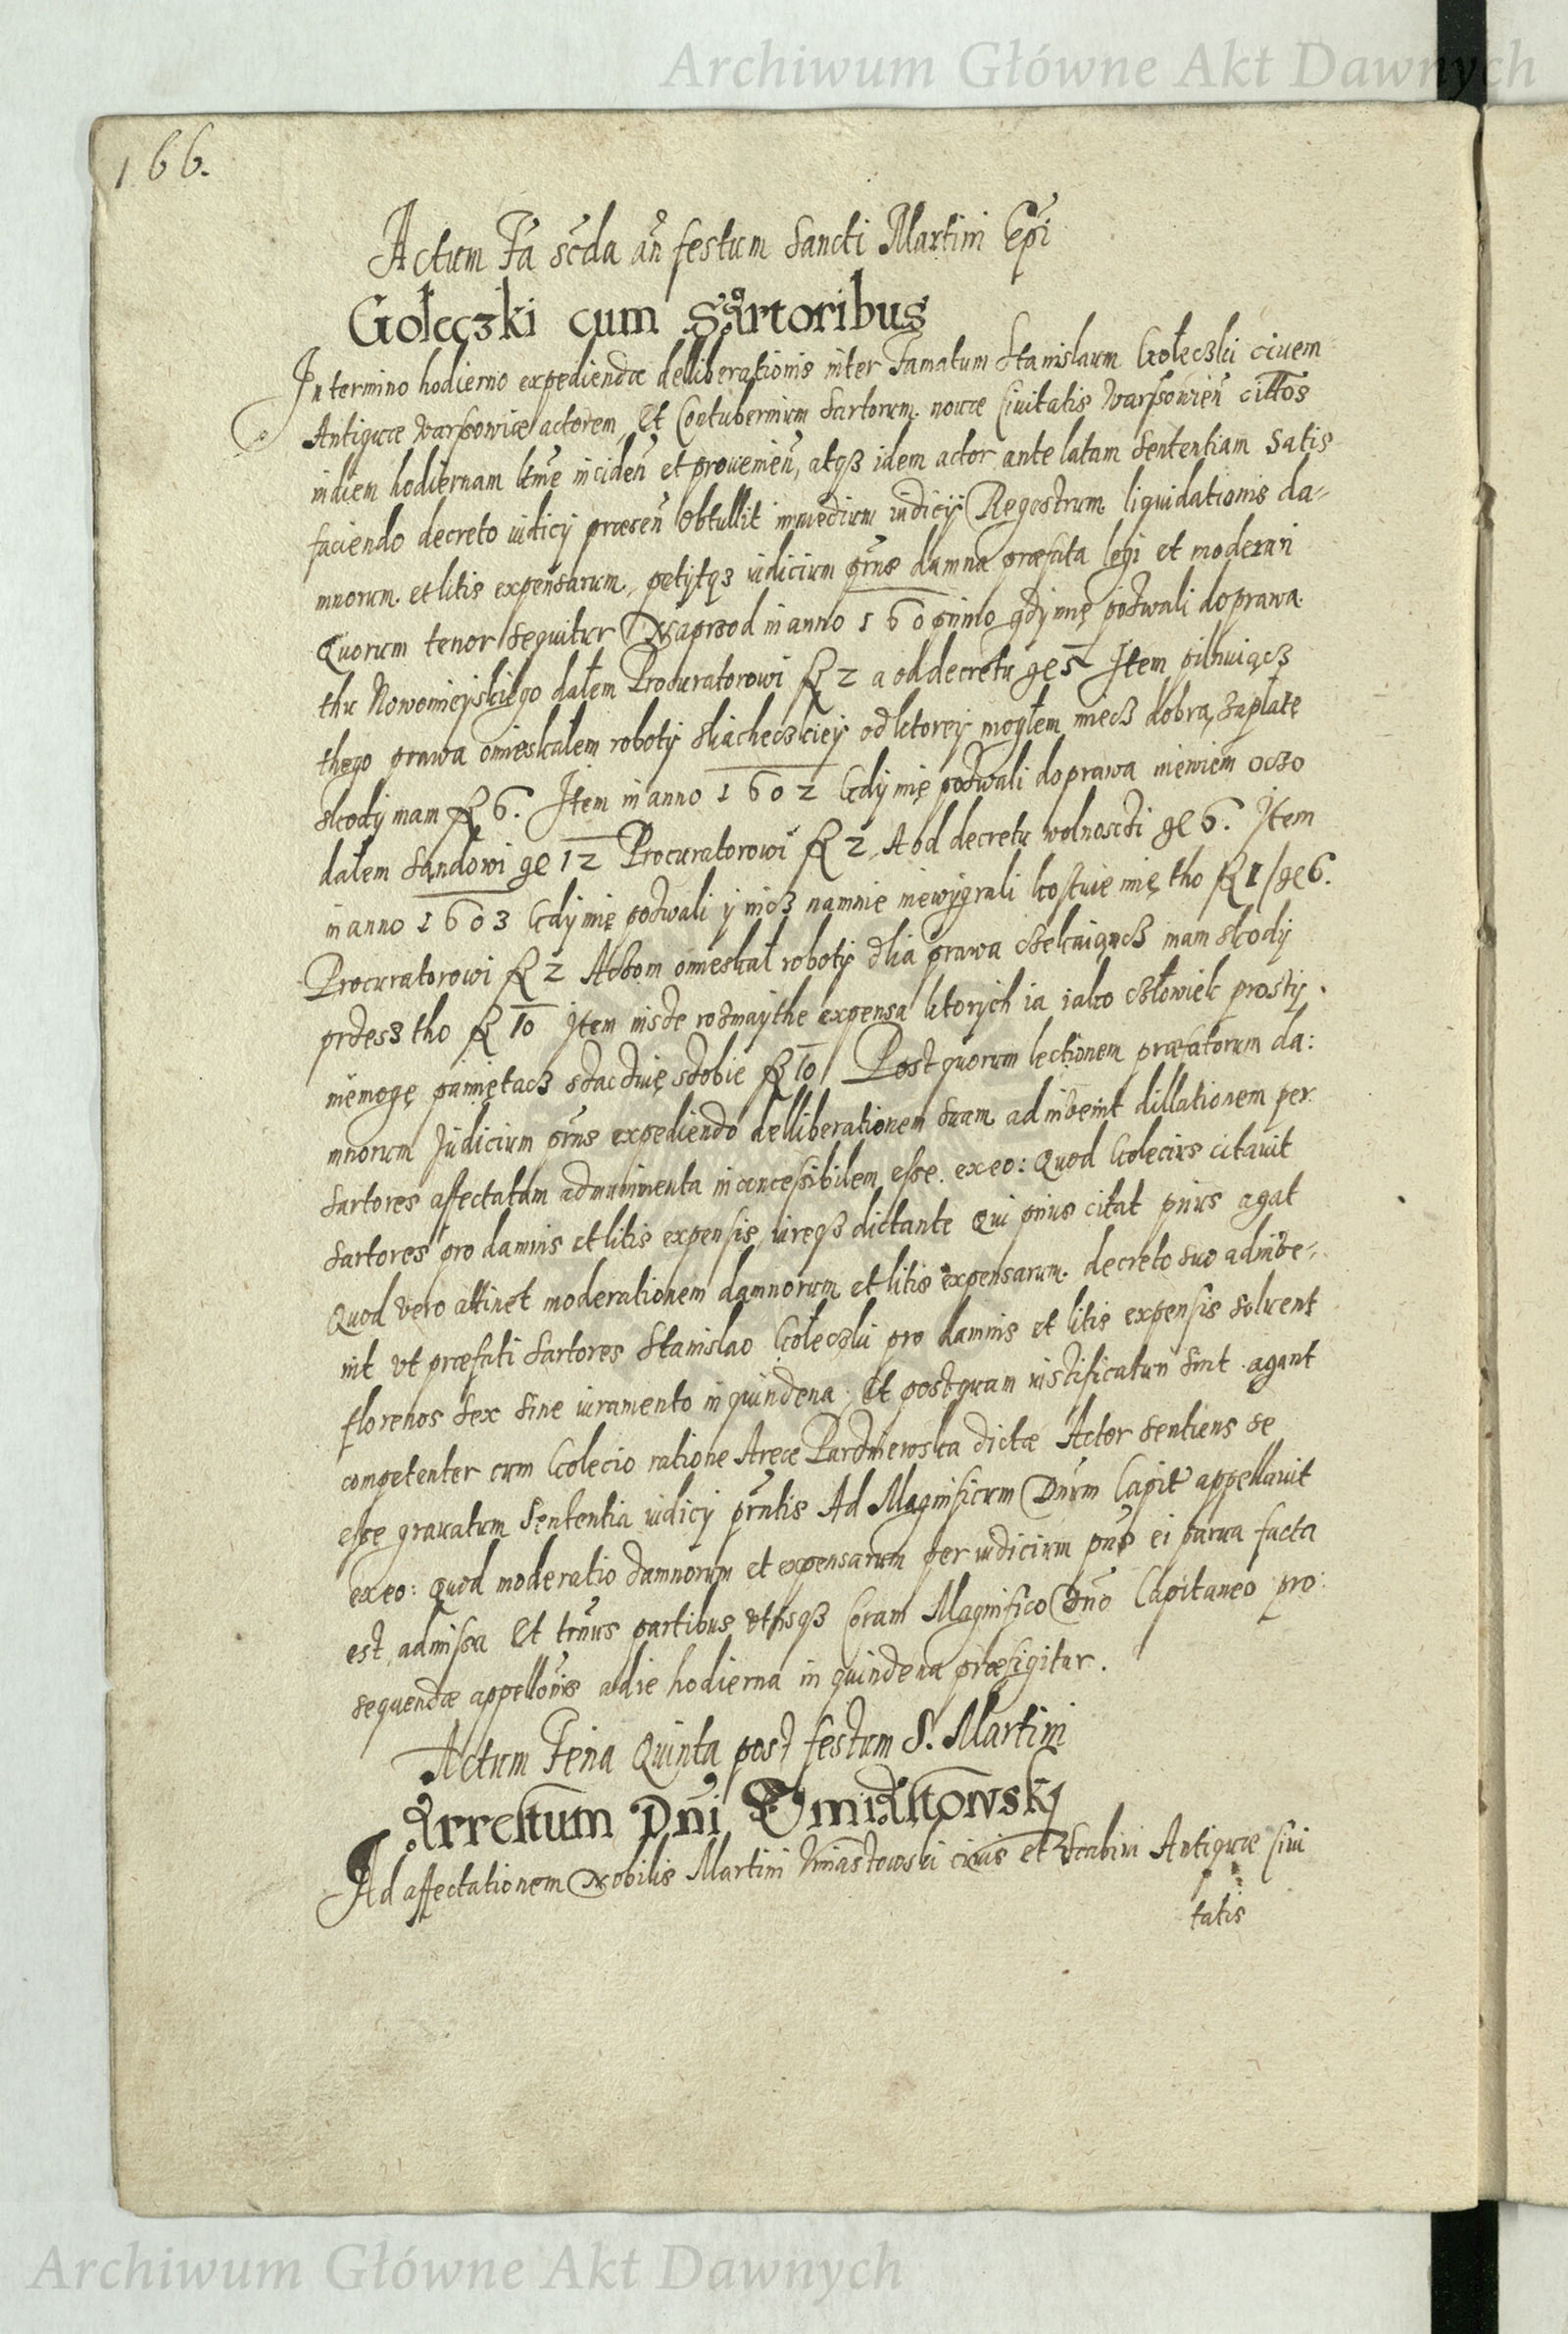 Archiwum Główne Akt Dawnych
166.
Actum Fa scda an festum Sancti Martini Epi
Gołeczki cum Sartoribus
In termino hodierno expediendæ delliberationis inter Famatum Stanislaum Gołeczki ciuem
Antiquæ Varssowiæ actorem, Et Contubernium Sartorum nouæ Ciuitatis Varssowien cittos
in diem hodiernam inciden et prouenien, atqz idem actor ante latam sententiam satis
faciendo decreto iudicij præsen Obtullit in medium iudicij Regestrum liquidationis da-
mnorum et litis expensarum, petijtqz iudicium prns damna præfata legi et moderari
Quorum tenor sequitur Naprzod in anno 160 primo gdy mię pozwali do prawa
thu Nowomieyskiego dałem Procuratorowi fl 2 a od decretu ge 5 Item pilnuiącz
thego prawa omieskałem roboty sliacheczkiey od ktorey mogłem miecz dobrą zapłatę
skody mam fl 6. Item in anno 1602 Gdy mię pozwali do prawa niewiem oczo
dałem Sandowi ge 12 Procuratorowi fl 2, A od decretu wolnosczi ge 6. Item
in anno 1603 Gdy mię pozwali y nicz namnie niewygrali kostuie mię tho fl 1/ge 6.
Procuratorowi fl 2 Aczom omieskał roboty dlia prawa czekaiącz mam skody
przesz tho fl 10 Item insze rozmaythe expensa ktorych ia iako człowiek prosty.
niemogę pamiętacz szaczuię szobie fl 10/ Post quorum lectionem præfatorum da:
mnorum Judicium prns expediendo delliberationem suam adinuenit dillationem per
Sartores affectatam ad munimenta inconcessibilem esse. ex eo: Quod Golecius citauit
Sartores pro damnis et litis expensis, iureqz dictante Qui prius citat prius agat
Quod vero attinet moderationem damnorum et litis expensarum. decreto suo adinue-
nit vt præfati Sartores Stanislao Gołeczki pro damnis et litis expensis soluent
florenos sex sine iuramento in quindena, Et postquam iustificatum sint agant
competenter cum Golecio ratione Areæ Pardniewska dictæ Actor sentiens se
esse grauatum sententia iudicij prntis Ad Magnificum Dnum Capit appellauit
ex eo: Quod moderatio damnorum et expensarum per iudicium prns ei parua facta
est, admissa Et trnus partibus vtrisqz Coram Magnifico Dno Capitaneo pro:
sequendæ appellonis a die hodierna in quindena præfigitur.
Actum Feria Quinta post festum S. Martini
Arrestum Dni Vmiastowskj
Ad affectationem Nobilis Martini Vmiastowski ciuis et Scabini Antiquæ Ciui
tatis
Archiwum Główne Akt Dawnych